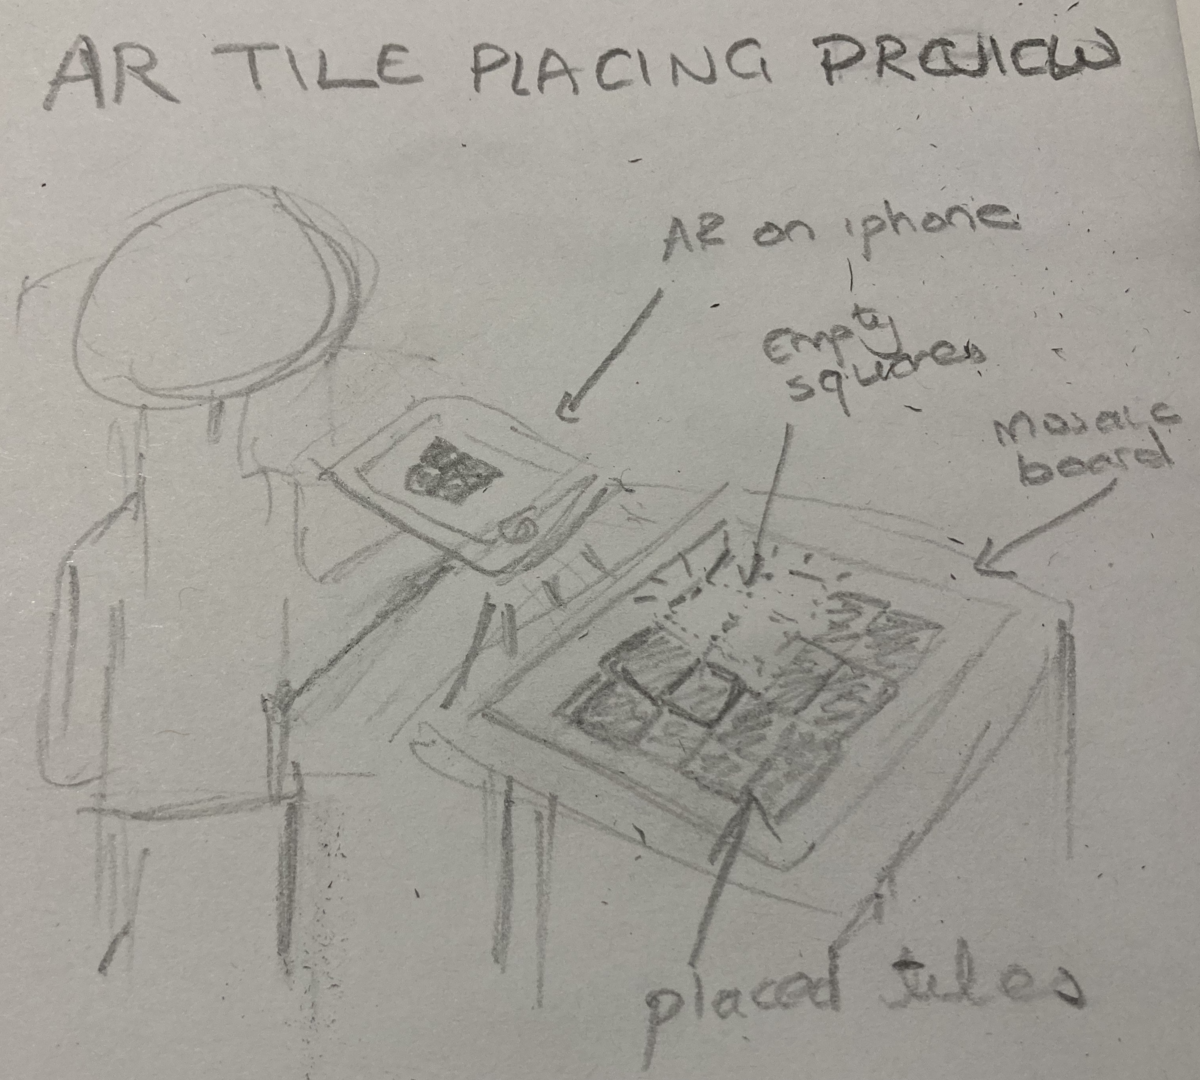 AR TILE PLACING PREVIEW
AR on iphone
empty
squares
Mosaic
board
placed tiles